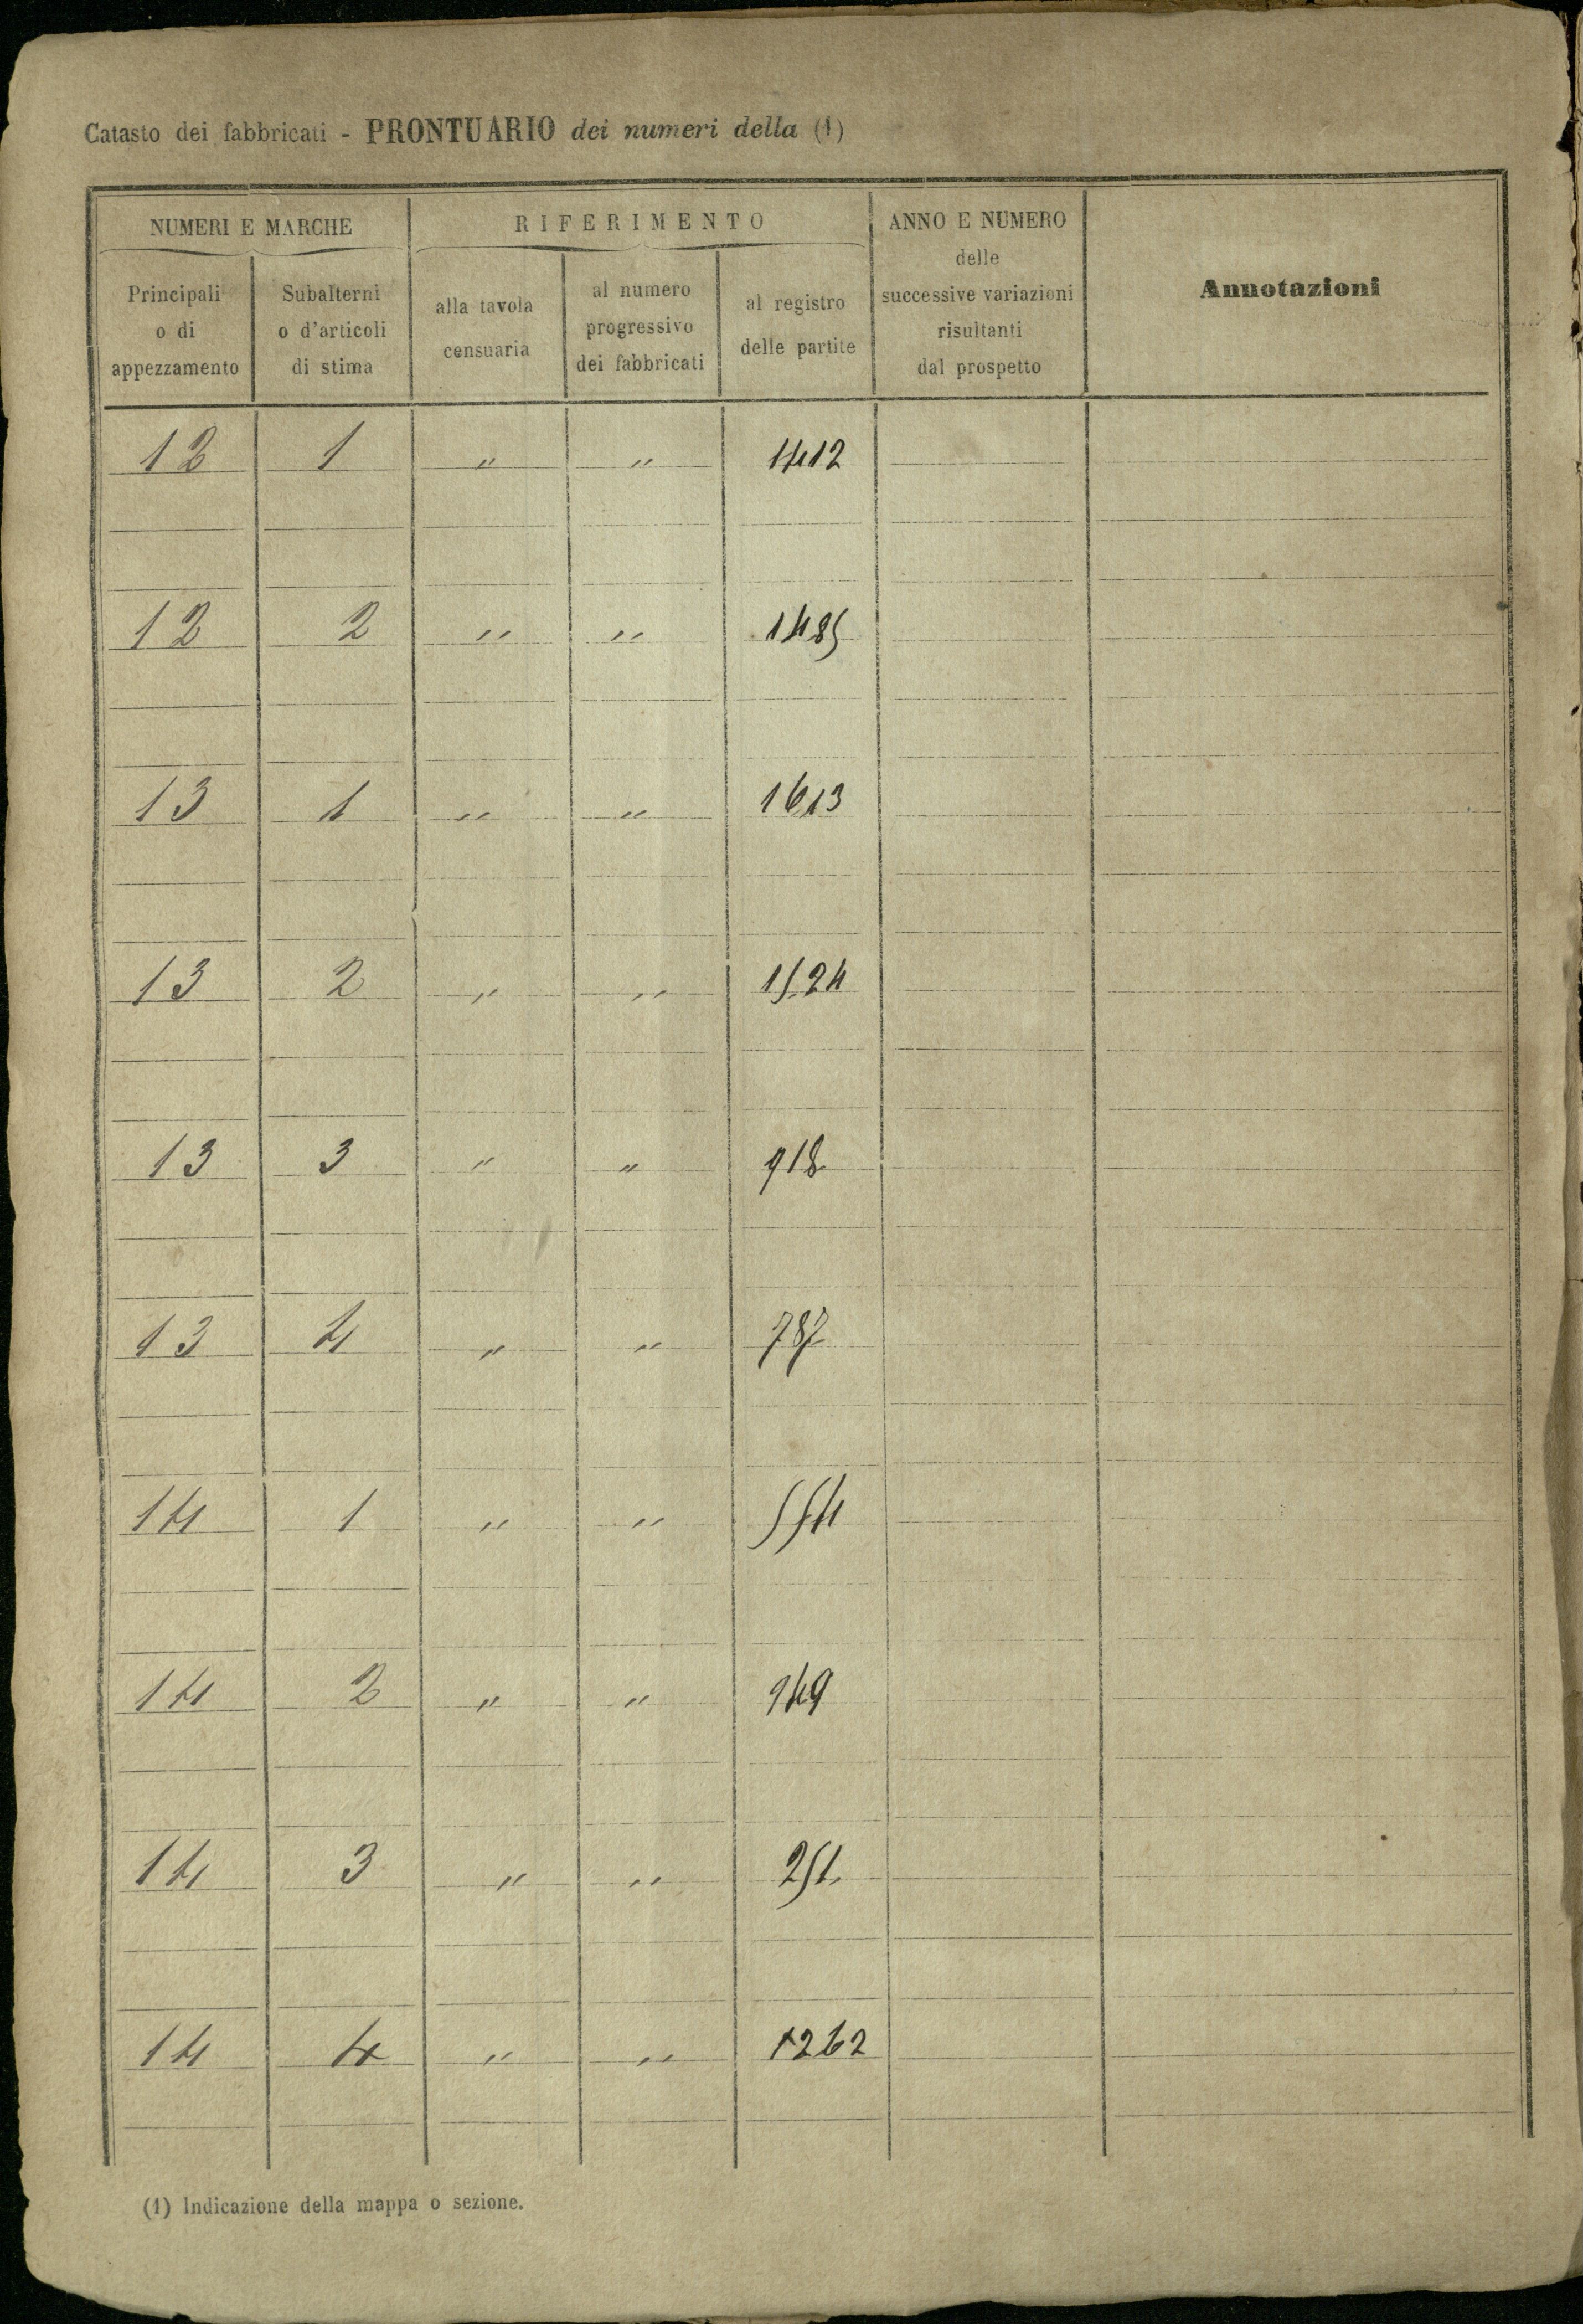 Catasto dei fabbricati - PRONTUARIO dei numeri della (1)
NUMERI E MARCHE
Principali o di appezzamento
Subalterni o d'articoli di stima
RIFERIMENTO
alla tavola censuaria
al numero progressivo dei fabbricati
al registro delle partite
ANNO E NUMERO delle successive variazioni risultanti dal prospetto
Annotazioni
12 1 " " 1412
12 2 " " 1485
13 1 " " 1613
13 2 " " 1524
13 3 " " 918
13 4 " " 787
14 1 " " 554
14 2 " " 949
14 3 " " 251
14 4 " " 1262
(1) Indicazione della mappa o sezione.